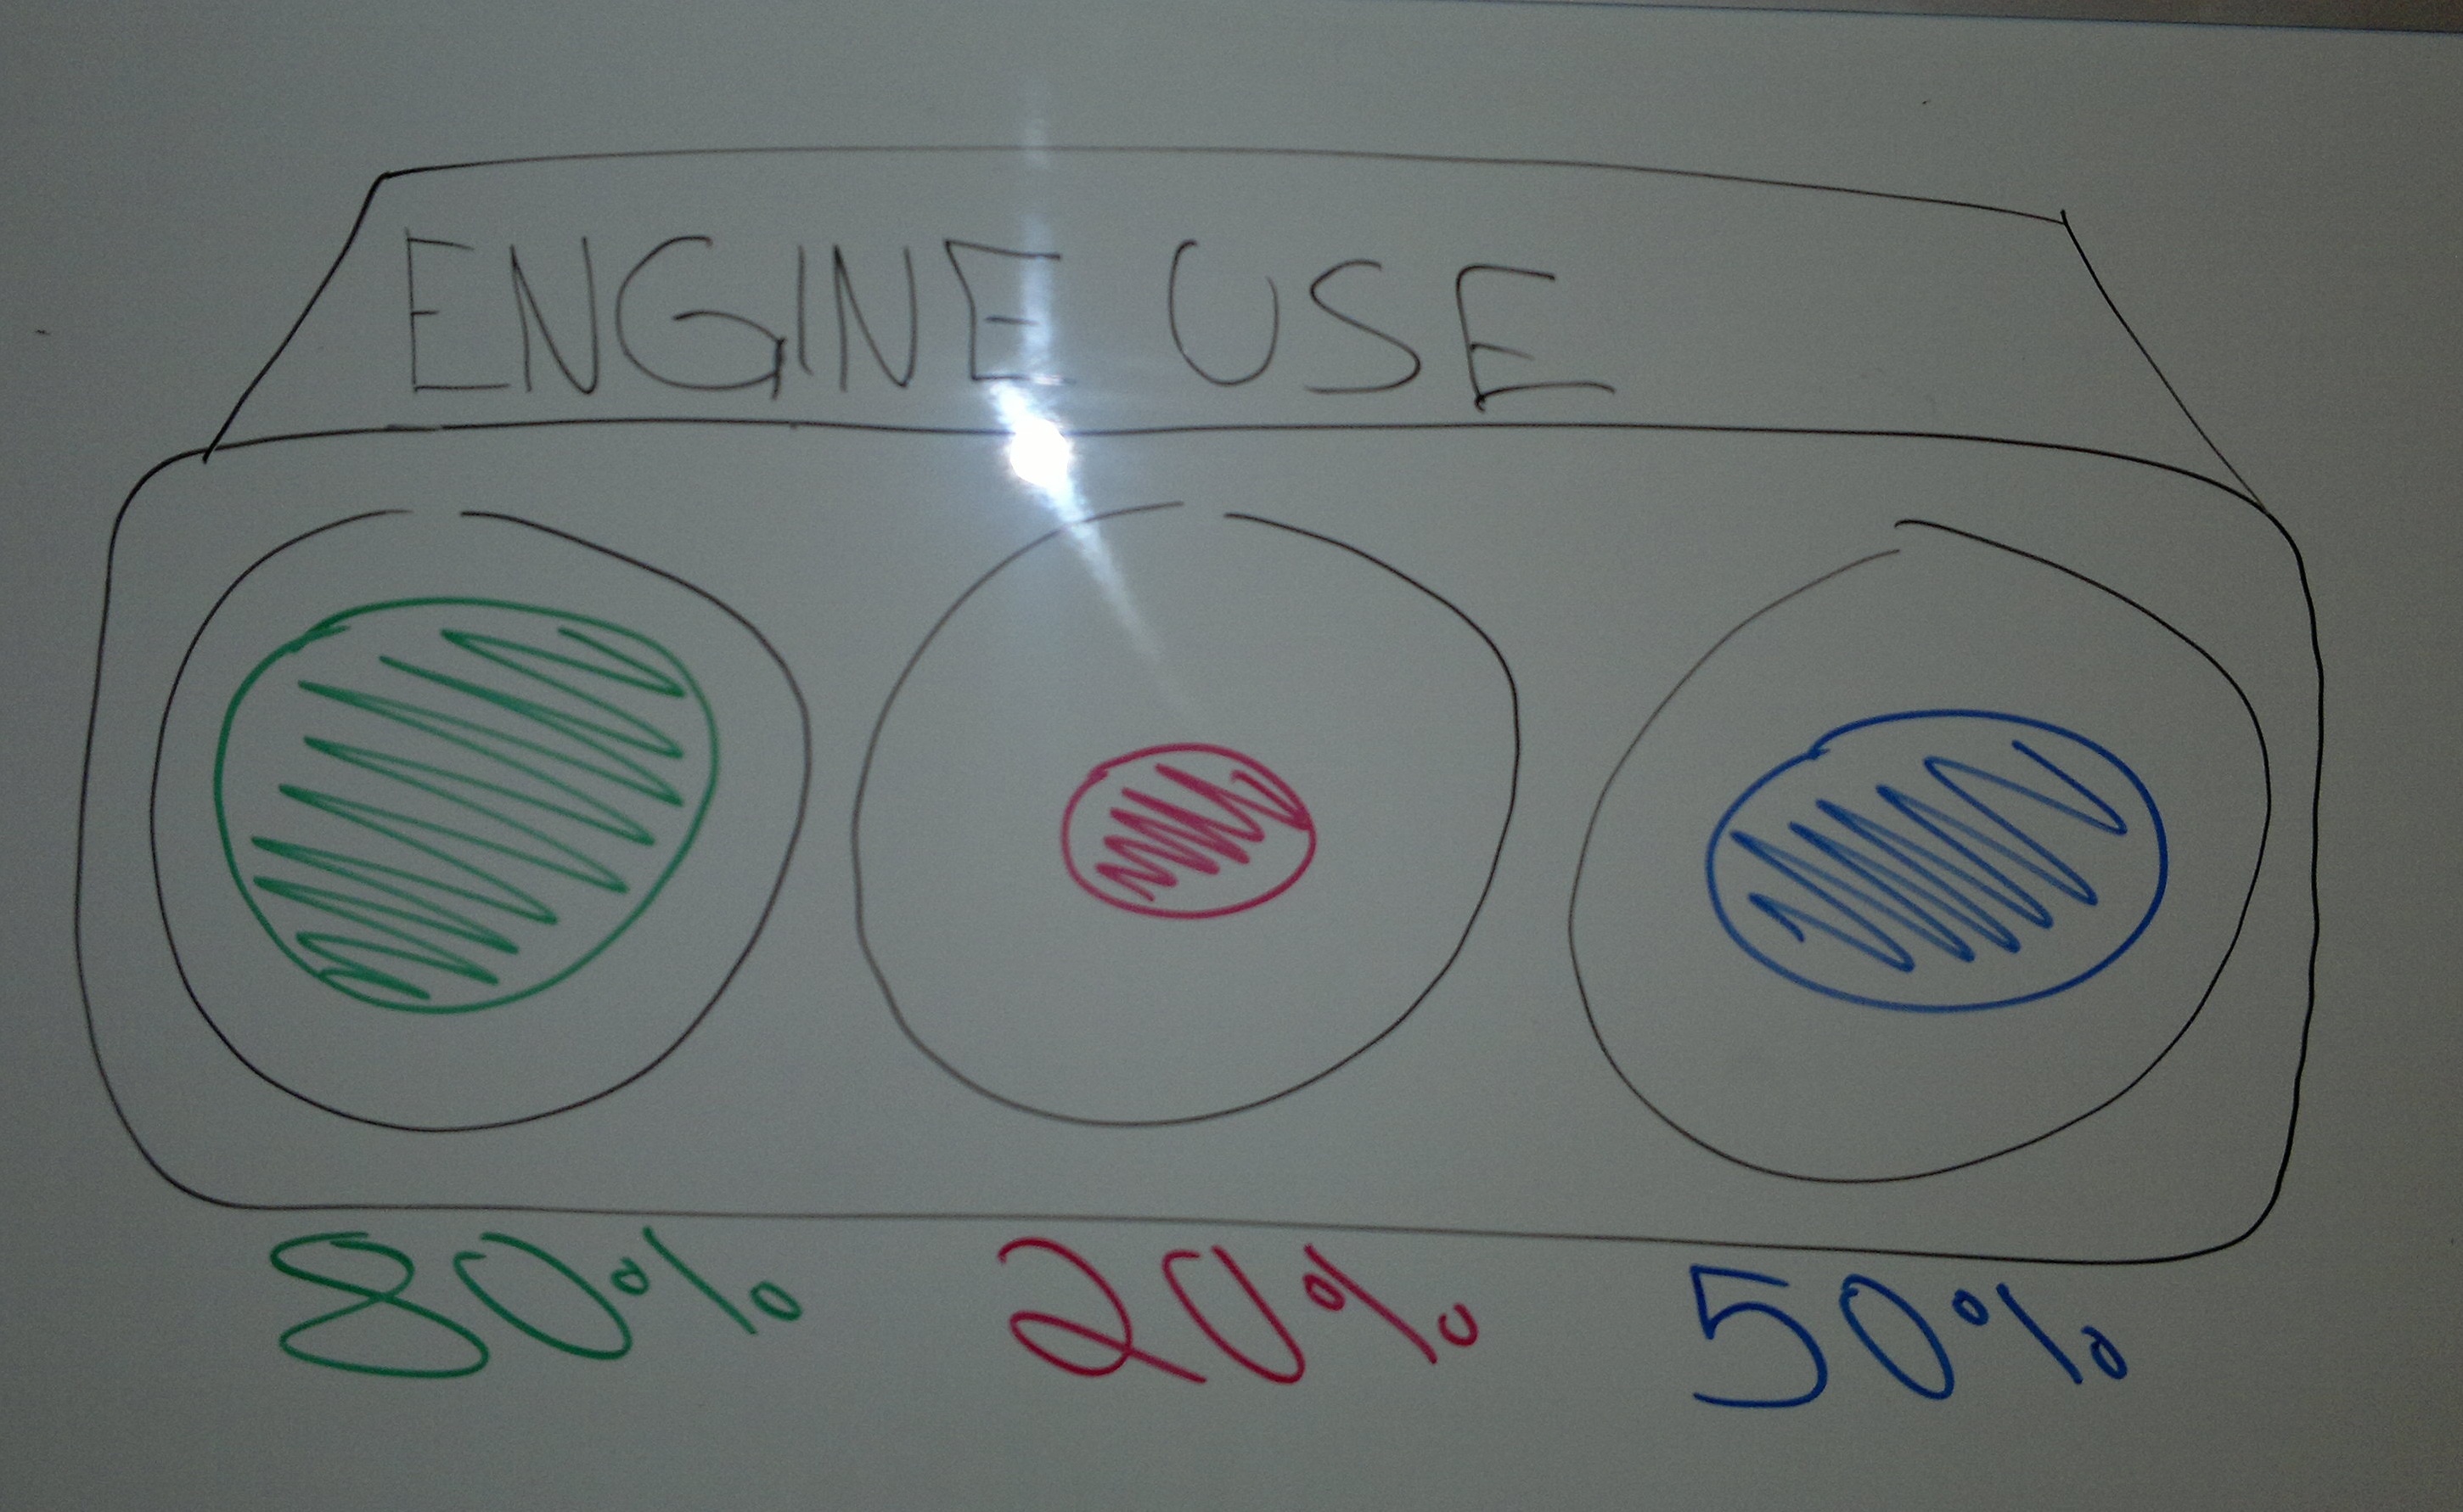 ENGINE USE
80% 20% 50%